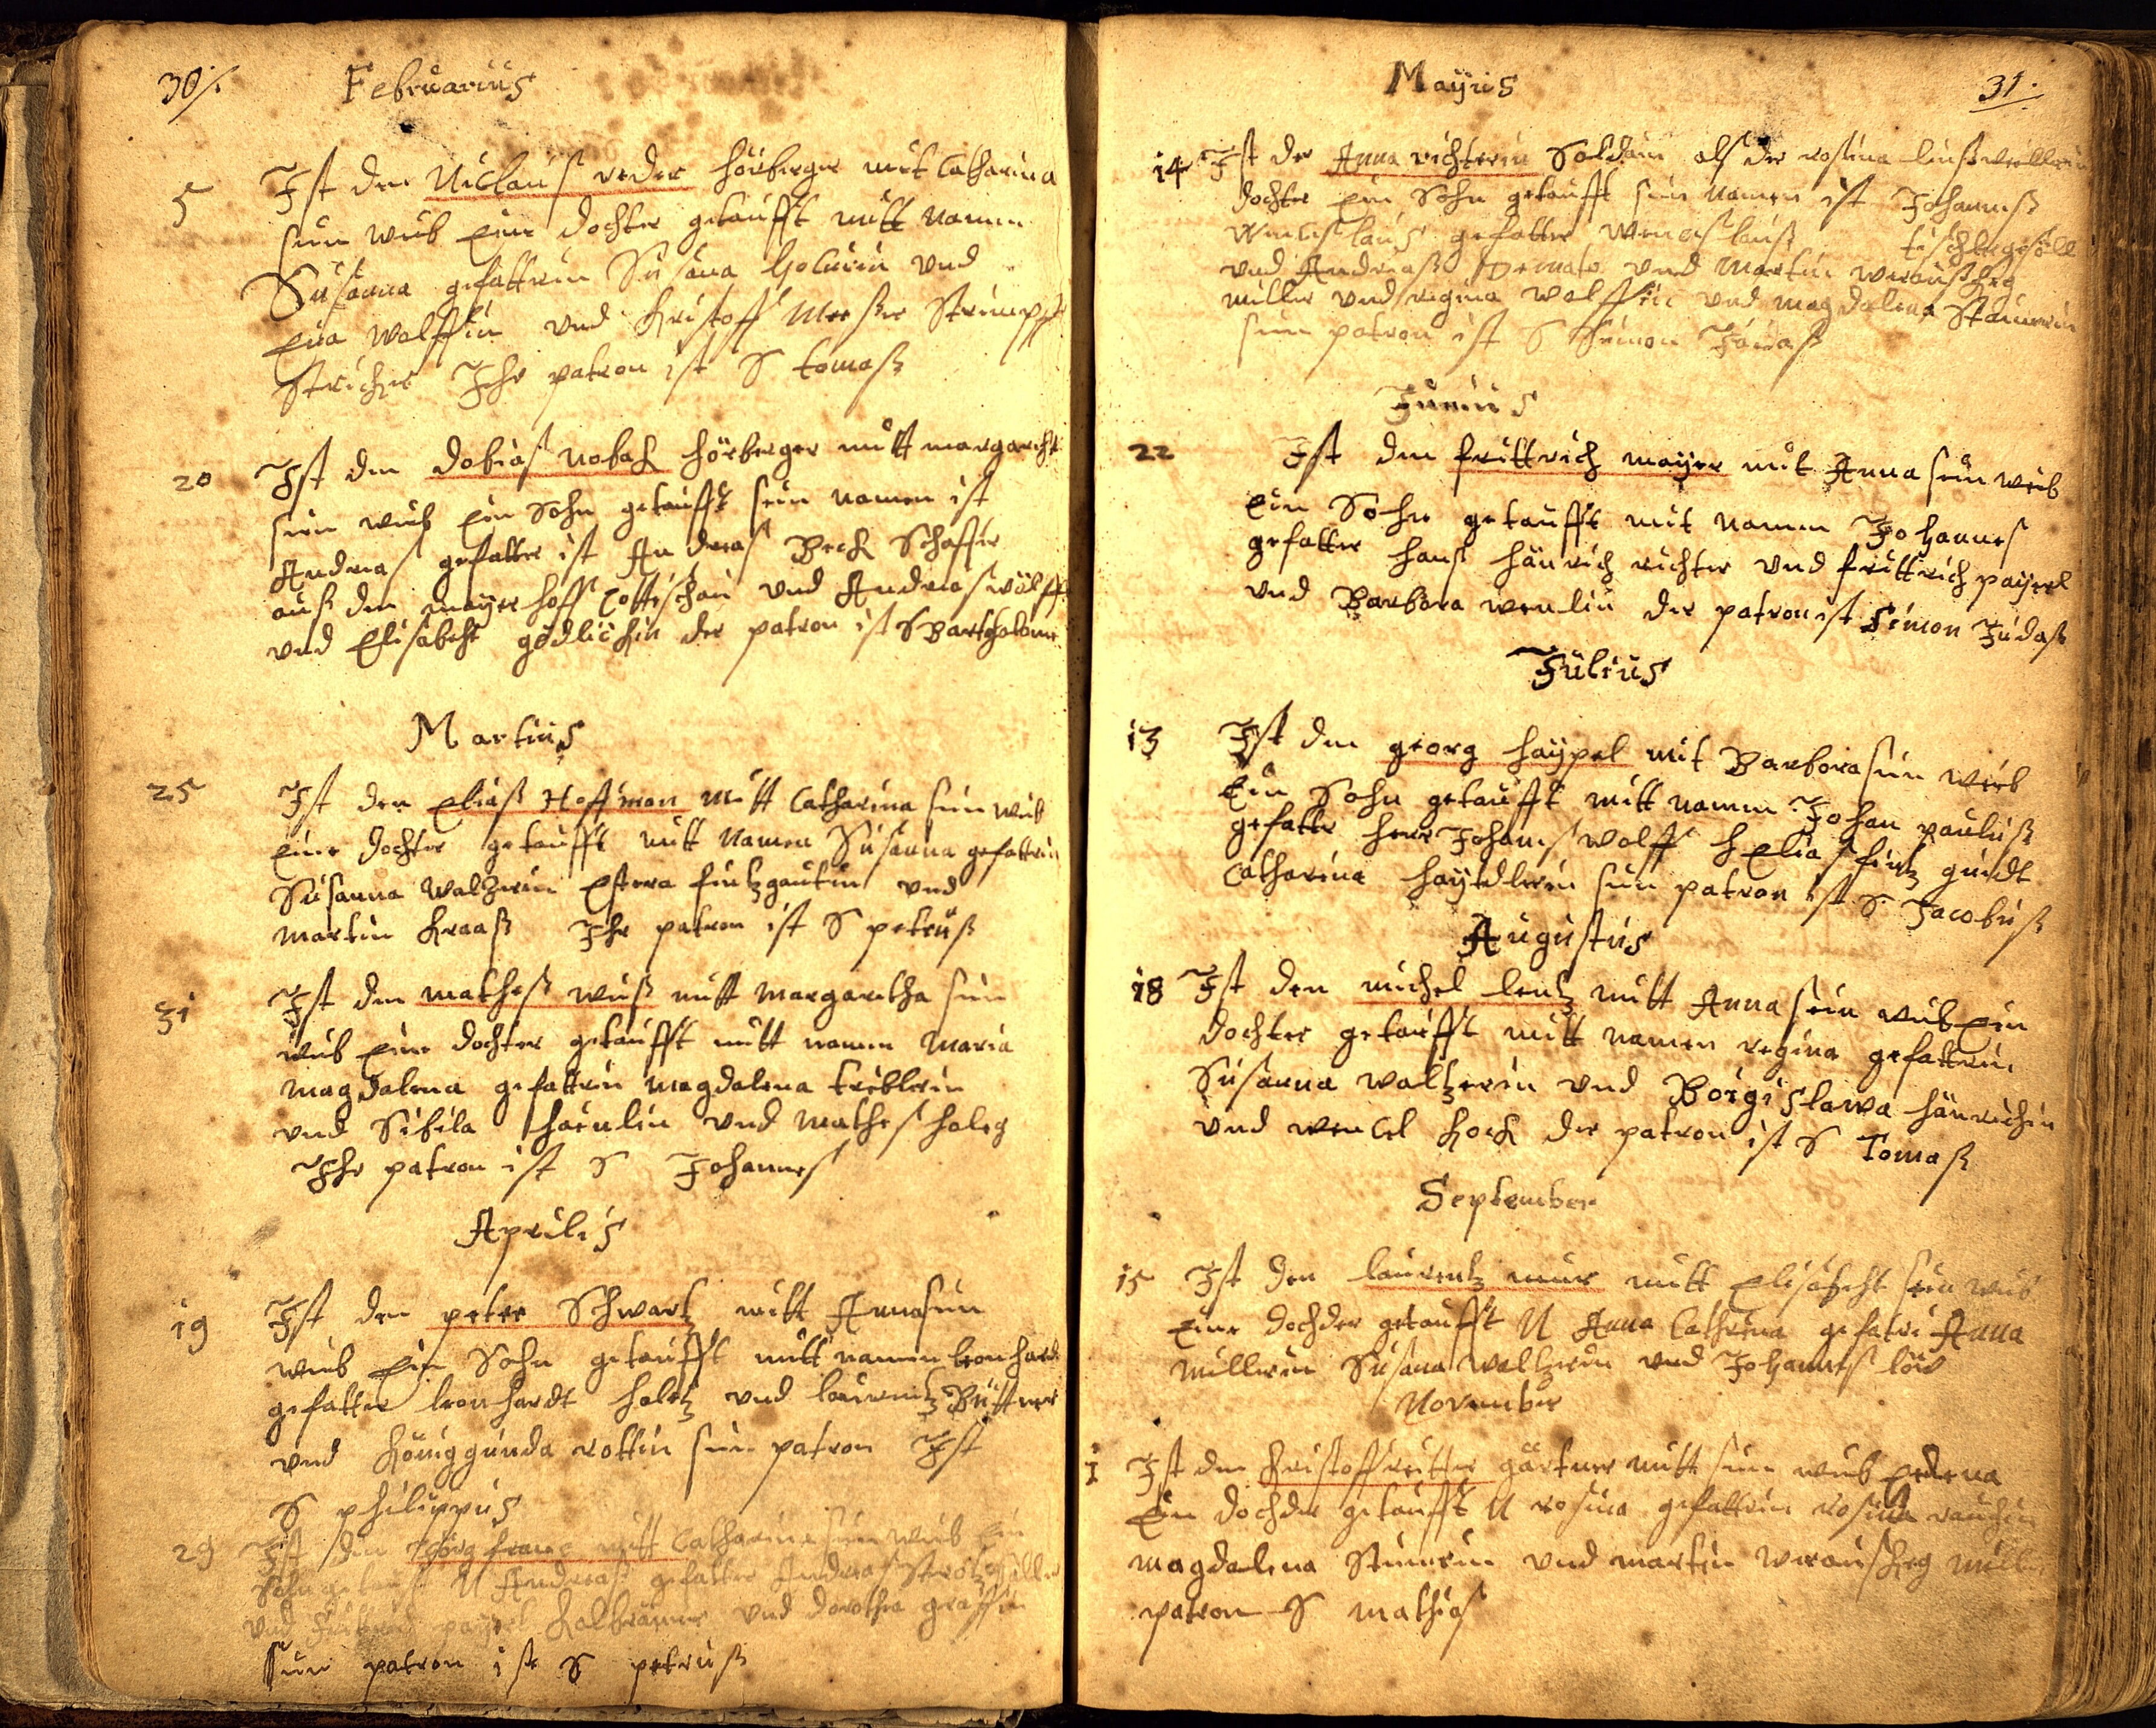 30/.
Februarius
5 Ist den Niclauß reder hörberger mit Catharina
sein weib Eine dochter getaufft mitt namen
Susanna gefattrin Susana und
Eva Wolffin und Kristoff Strimpff
stricker Ihr patron ist S tomaß
20 Ist den dobiaß nobaK hörberger mitt margareht
sein weib Ein Sohn getaufft sein namen ist
Andreaß gefatter ist Andreaß BecK Schaffer
auß den mayerhoff und Andreaß wölff
und Elisabeht gödlichin der patron ist S Bartholome
Martius
25 Ist den Eliaß Hoffman Mitt Catharina sein weib
Eine dochter getaufft mitt Namen Susanna gefattrin
Susanna Walzerin Estera und
Martin Kraaß Ihr patron ist S petruß
31 Ist den matheß weiß mitt Margaretha sein
weib Eine dochter getaufft mitt namen Maria
Magdalena gefattrin Magdalena
und Sibila und Matheß
Ihr patron ist S Johanneß
Aprilis
19 Ist den peter Schwartz mitt Anna sein
weib Ein Sohn getaufft mitt namen leonhard
gefatter leonhardt holtz und laurentz Büttner
und Königgunda rottin sein patron Ist
S philippus
29 Ist den mitt Catharina sein weib Ein
Sohn getauft N Andreaß gefatter Andreaß
und payerl und dorothea graffin
Sein patron ist S petruß
Mayus
31.
14 Ist der Anna richterin Soldain alß der rosina
dochter Ein Sohn getaufft sein Namen ist Johanneß
Wencislaus gefatter Wencislauß tischlergesöll
und Andreaß und Martin
miller und regina Wolffin und magdalena
sein patron ist S Simon Judaß
Junius
22 Ist den frittrich mayer mit Anna sein weib
Ein Sohn getaufft mit namen Johannes
gefatter hanß hänrich richter und frittrich payerl
und Barbora wenlin der patron ist Simon Judaß
Julius
13 Ist den georg haypel mit Barbora sein weib
Ein Sohn getaufft mitt namen Johan pauluß
gefatter herr Johanß Wolff Eliaß
Catharina sein patron ist S Jacobuß
Augustus
18 Ist den michel lentz mitt Anna sein weib Ein
dochter getaufft mitt namen regina gefattrin
Susanna waltzerin und Borgislawa hänrichin
und wencel KocK der patron ist S Tomaß
September
15 Ist den laurentz mitt Elisabeht sein weib
Eine dochder getaufft N Anna Cathrina gefatri Anna
Millerin Susana waltzerin und Johanneß
November
1 Ist den Kristoff reitter gärtner mitt sein weib
Ein dochder getaufft N rosina gefattrin rosina
Magdalena und martin
patron S mathiaß